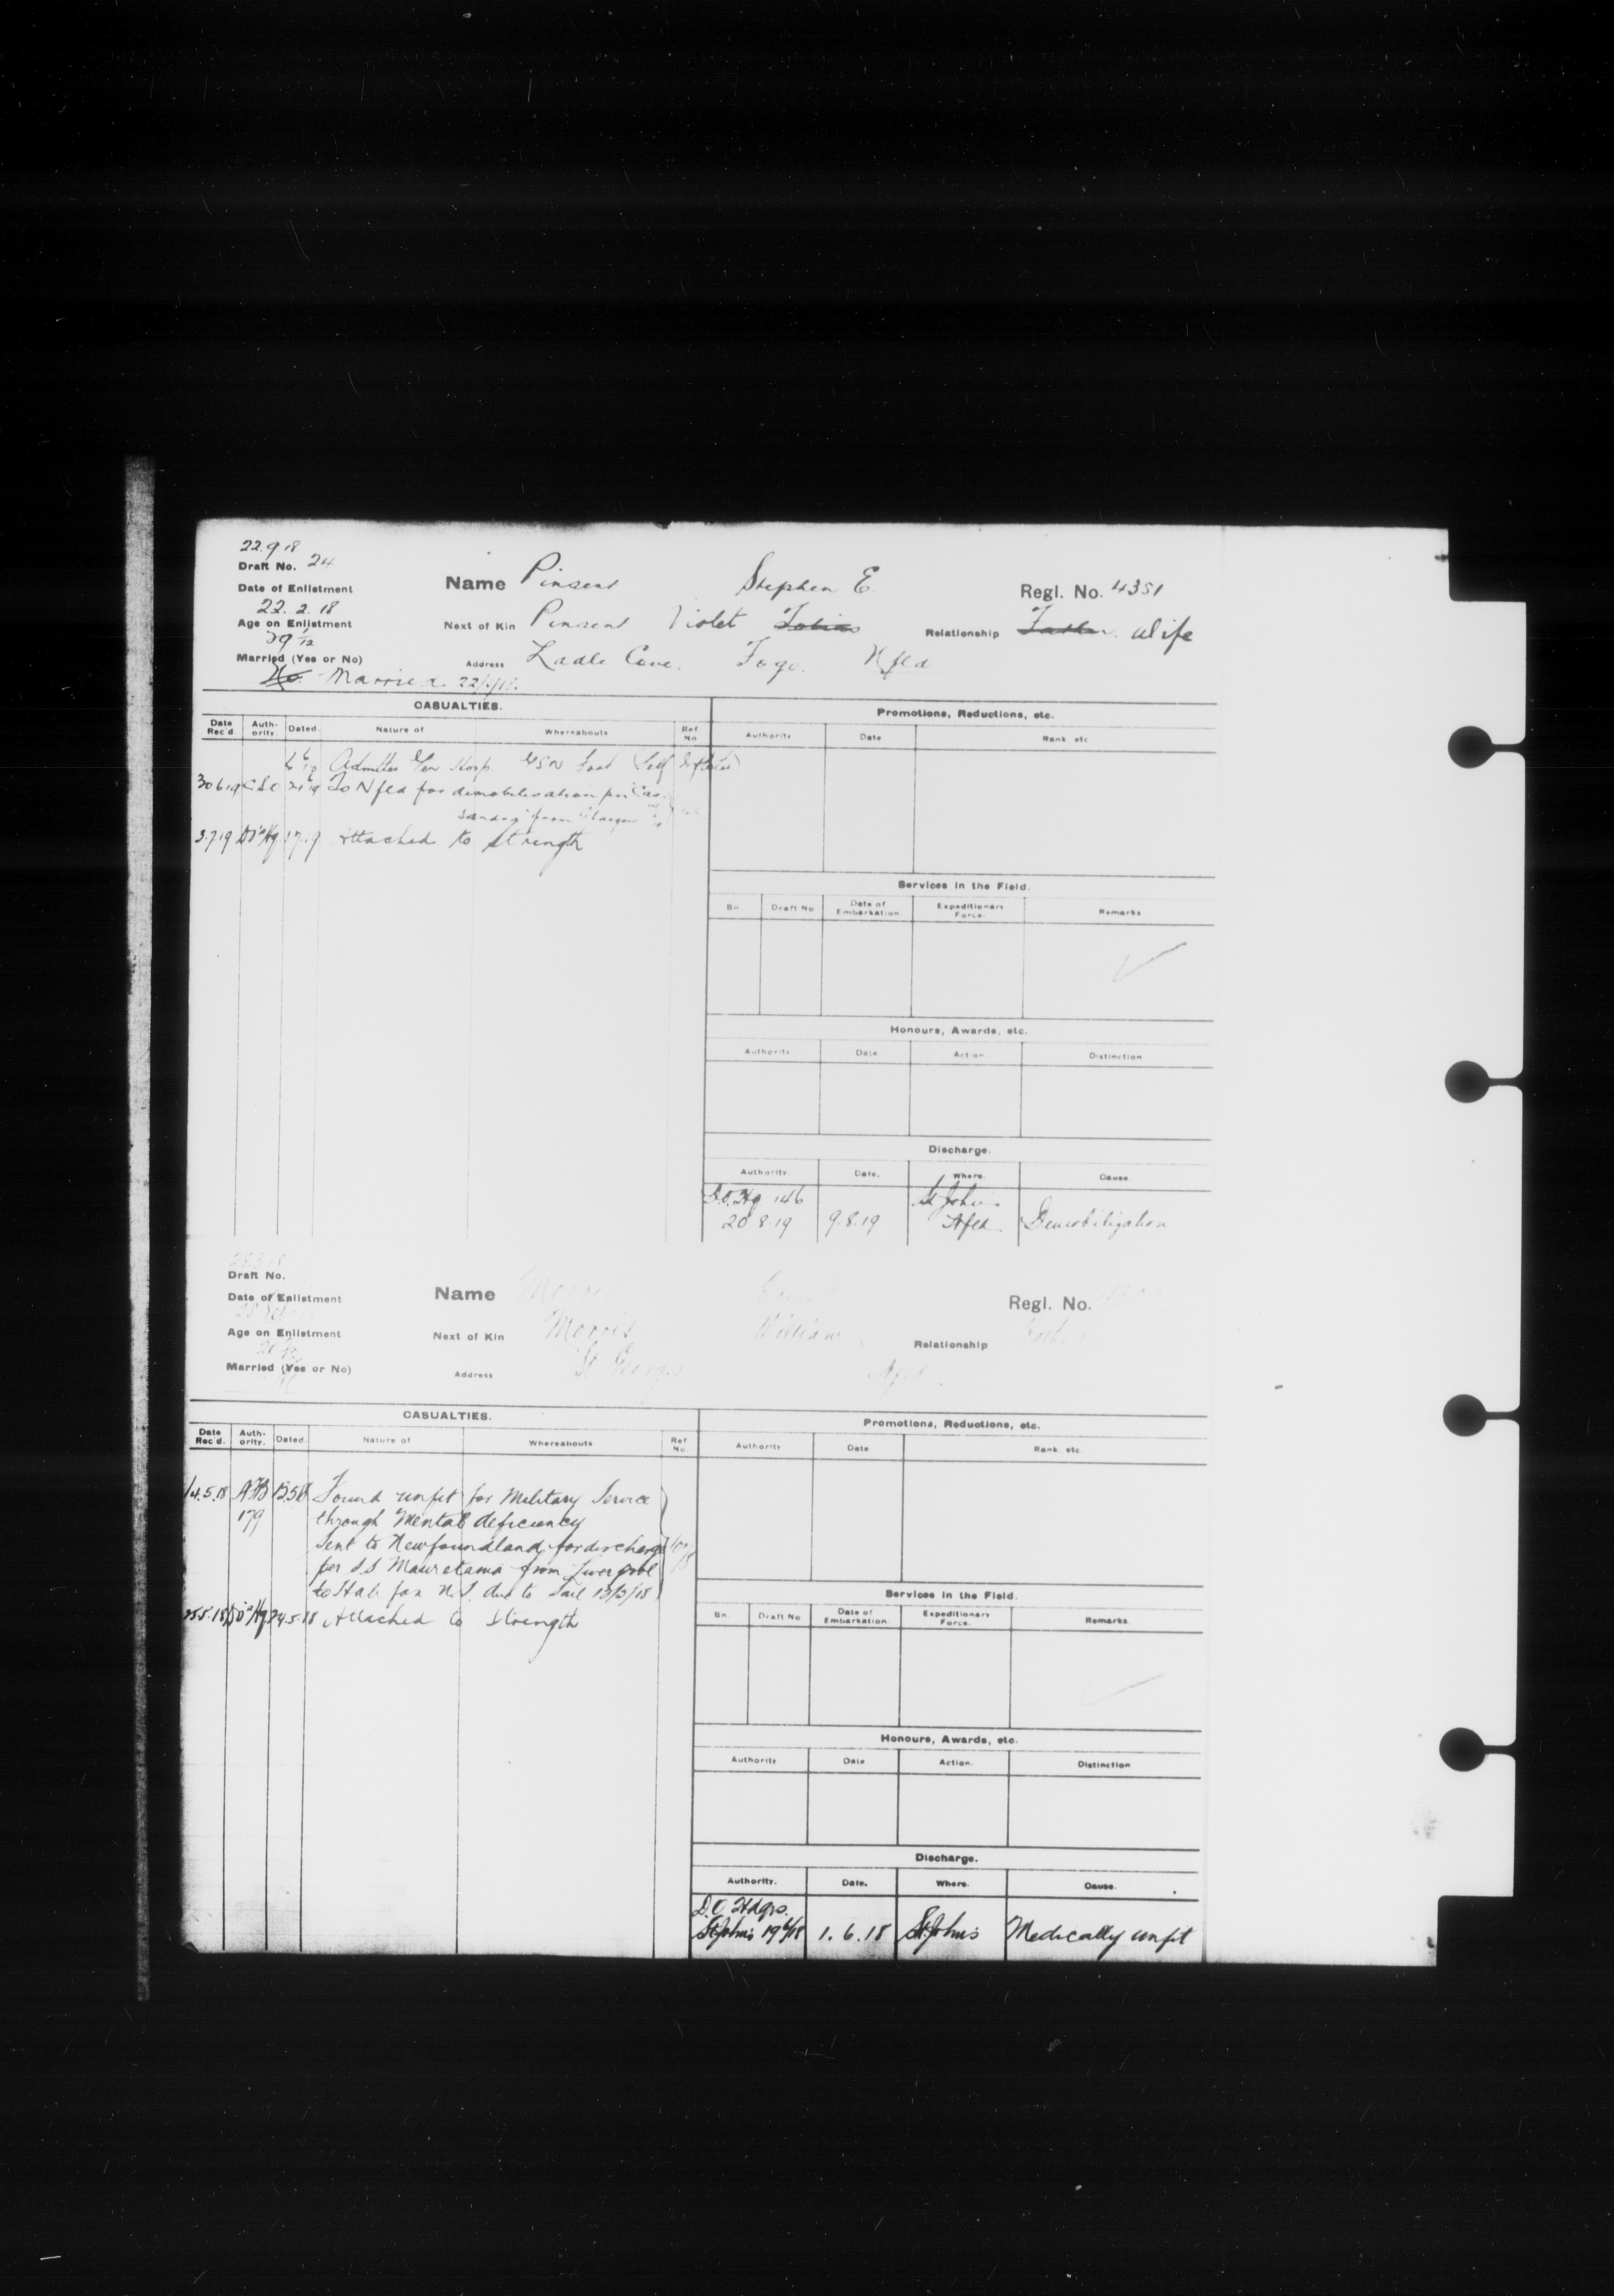 22.9.18
Draft No. 24
Date of Enlistment
22. 2. 18
Age on Enlistment
29 1/12
Married (Yes or No)
No. Married 22/
Name Pinsent Stephen E Regl. No. 4351
Next of Kin Pinsent Violet Tobias Relationship Father. Wife
Address Ladle Cove. Fogo. Nfld
CASUALTIES.
Date Rec'd Auth-ority. Dated. Nature of Whereabouts Ref. No
Admitted Gen Hosp. GSW Foot (Self Inflicted)
30 6 19 To Nfld for demobilisation per Cas-
sandra from Glasgow
3.7.19 DO Hq 1.7.19 Attached to Strength
Promotions, Reductions, etc.
Authority Date Rank, etc
Services in the Field.
Bn. Draft No Date of Embarkation Expeditionary Force. Remarks
Honours, Awards, etc.
Authority Date Action Distinction
Discharge.
Authority. Date. Where. Cause
D.O. Hq 146 St John's
20 8.19 9.8.19 Nfld. Demobilization
Draft No.
Date of Enlistment
Age on Enlistment
Married (Yes or No)
Name Morris Regl. No.
Next of Kin Morris William Relationship
Address St Georges Nfld.
CASUALTIES.
Date Rec'd. Auth-ority. Dated. Nature of Whereabouts Ref No
14.5.18 AFB 179 Found unfit for Military Service
through Mental deficiency
Sent to Newfoundland for discharge
per SS Mauretania from Liverpool
to Halifax N.S. due to Sail 13/5/18
25.5.18 DO Hq 24.5.18 Attached to Strength
Promotions, Reductions, etc.
Authority Date Rank, etc.
Services in the Field.
Bn. Draft No Date of Embarkation. Expeditionary Force. Remarks.
Honours, Awards, etc.
Authority Date Action. Distinction
Discharge.
Authority. Date. Where. Cause.
D.O. Hdqrs.
St John's 19/6/18 1. 6. 18 St. John's Medically unfit